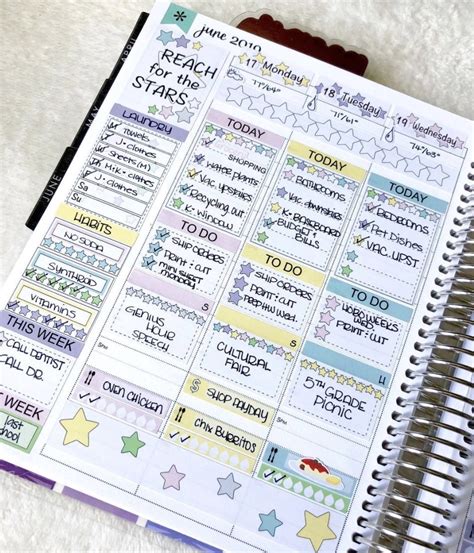 APRIL
MAY
JUNE
june 2019
REACH
for the
STARS
LAUNDRY
Towels
J - clothes
Sheets (M)
M - clothes
J. clothes
Sa
Su
HABITS
NO SODA
Synthroid
Vitamins
THIS WEEK
CALL DENTIST
CALL DR.
WEEK
last
school!
17 Monday
77°/68°
TODAY
SHOPPING
Water plants
Vac. upstairs
Recycling out
K - Window
TO DO
SHIP ORDERS
Print : cut
mini sheet
monday
5
GENIUS
HOUR
SPEECH
OVEN CHICKEN
18 Tuesday
77°/61°
TODAY
BATHROOMS
VAC. UPSTAIRS
K - BAKEBOARD
BUDGET :
BILLS
TO DO
SHIP ORDERS
Print : cut
PREP HW WED.
5
CULTURAL
FAIR
SHOP PAYDAY
CHIX BURRITOS
19 Wednesday
74°/63°
TODAY
BEDROOMS
Pet Dishes
VAC. UPST
TO DO
HOBO WEEKS
WED.
PRINT : CUT
4
5TH GRADE
PICNIC